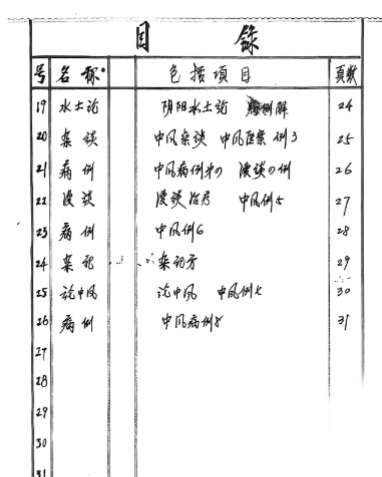 目 錄
号 名称 包括项目 頁数
19 水土论 阴阳水土论 例解 24
20 杂谈 中风杂谈 中风医案 例3 25
21 病例 中风病例 漫谈 例 26
22 漫谈 漫谈治疗 中风例5 27
23 病例 中风例6 28
24 杂记 杂记方 29
25 论中风 论中风 中风例 30
26 病例 中风病例8 31
27
28
29
30
31